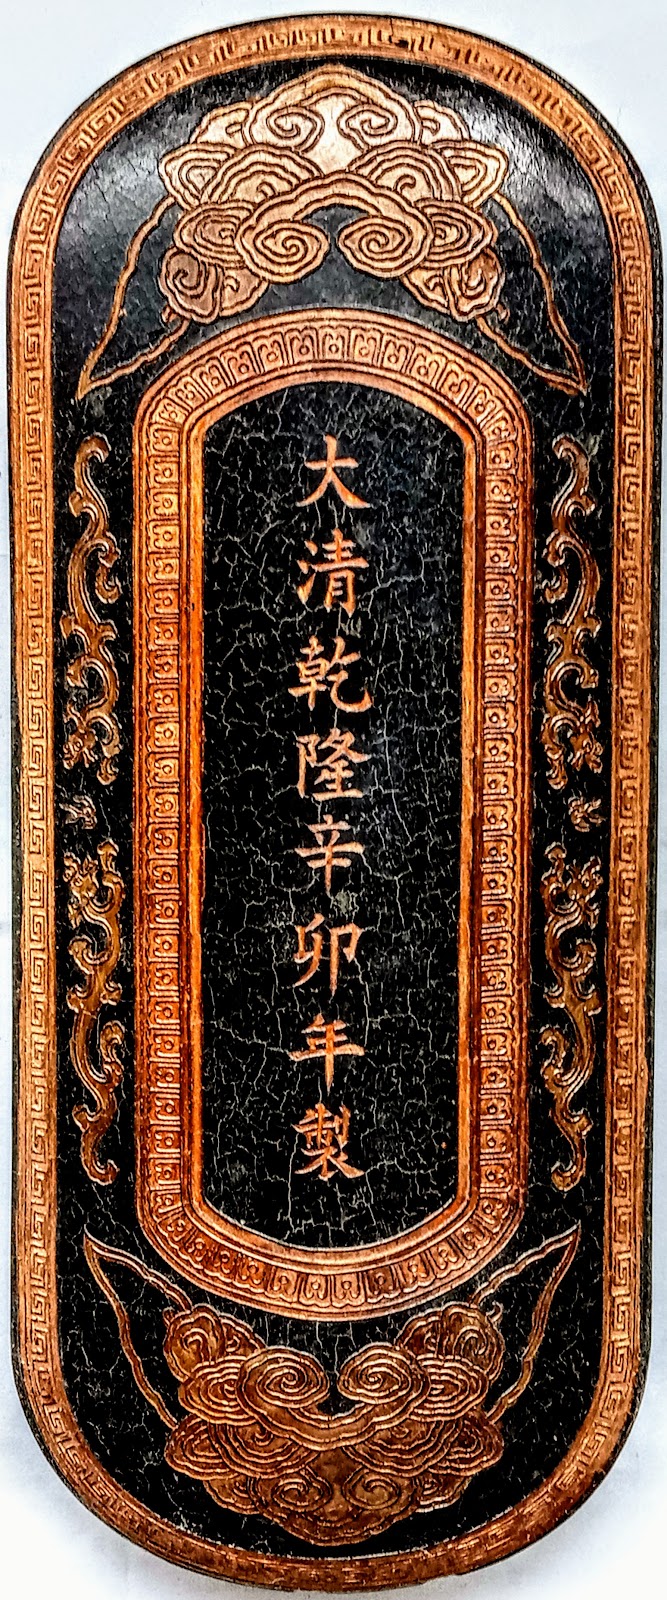 大清乾隆辛卯年製